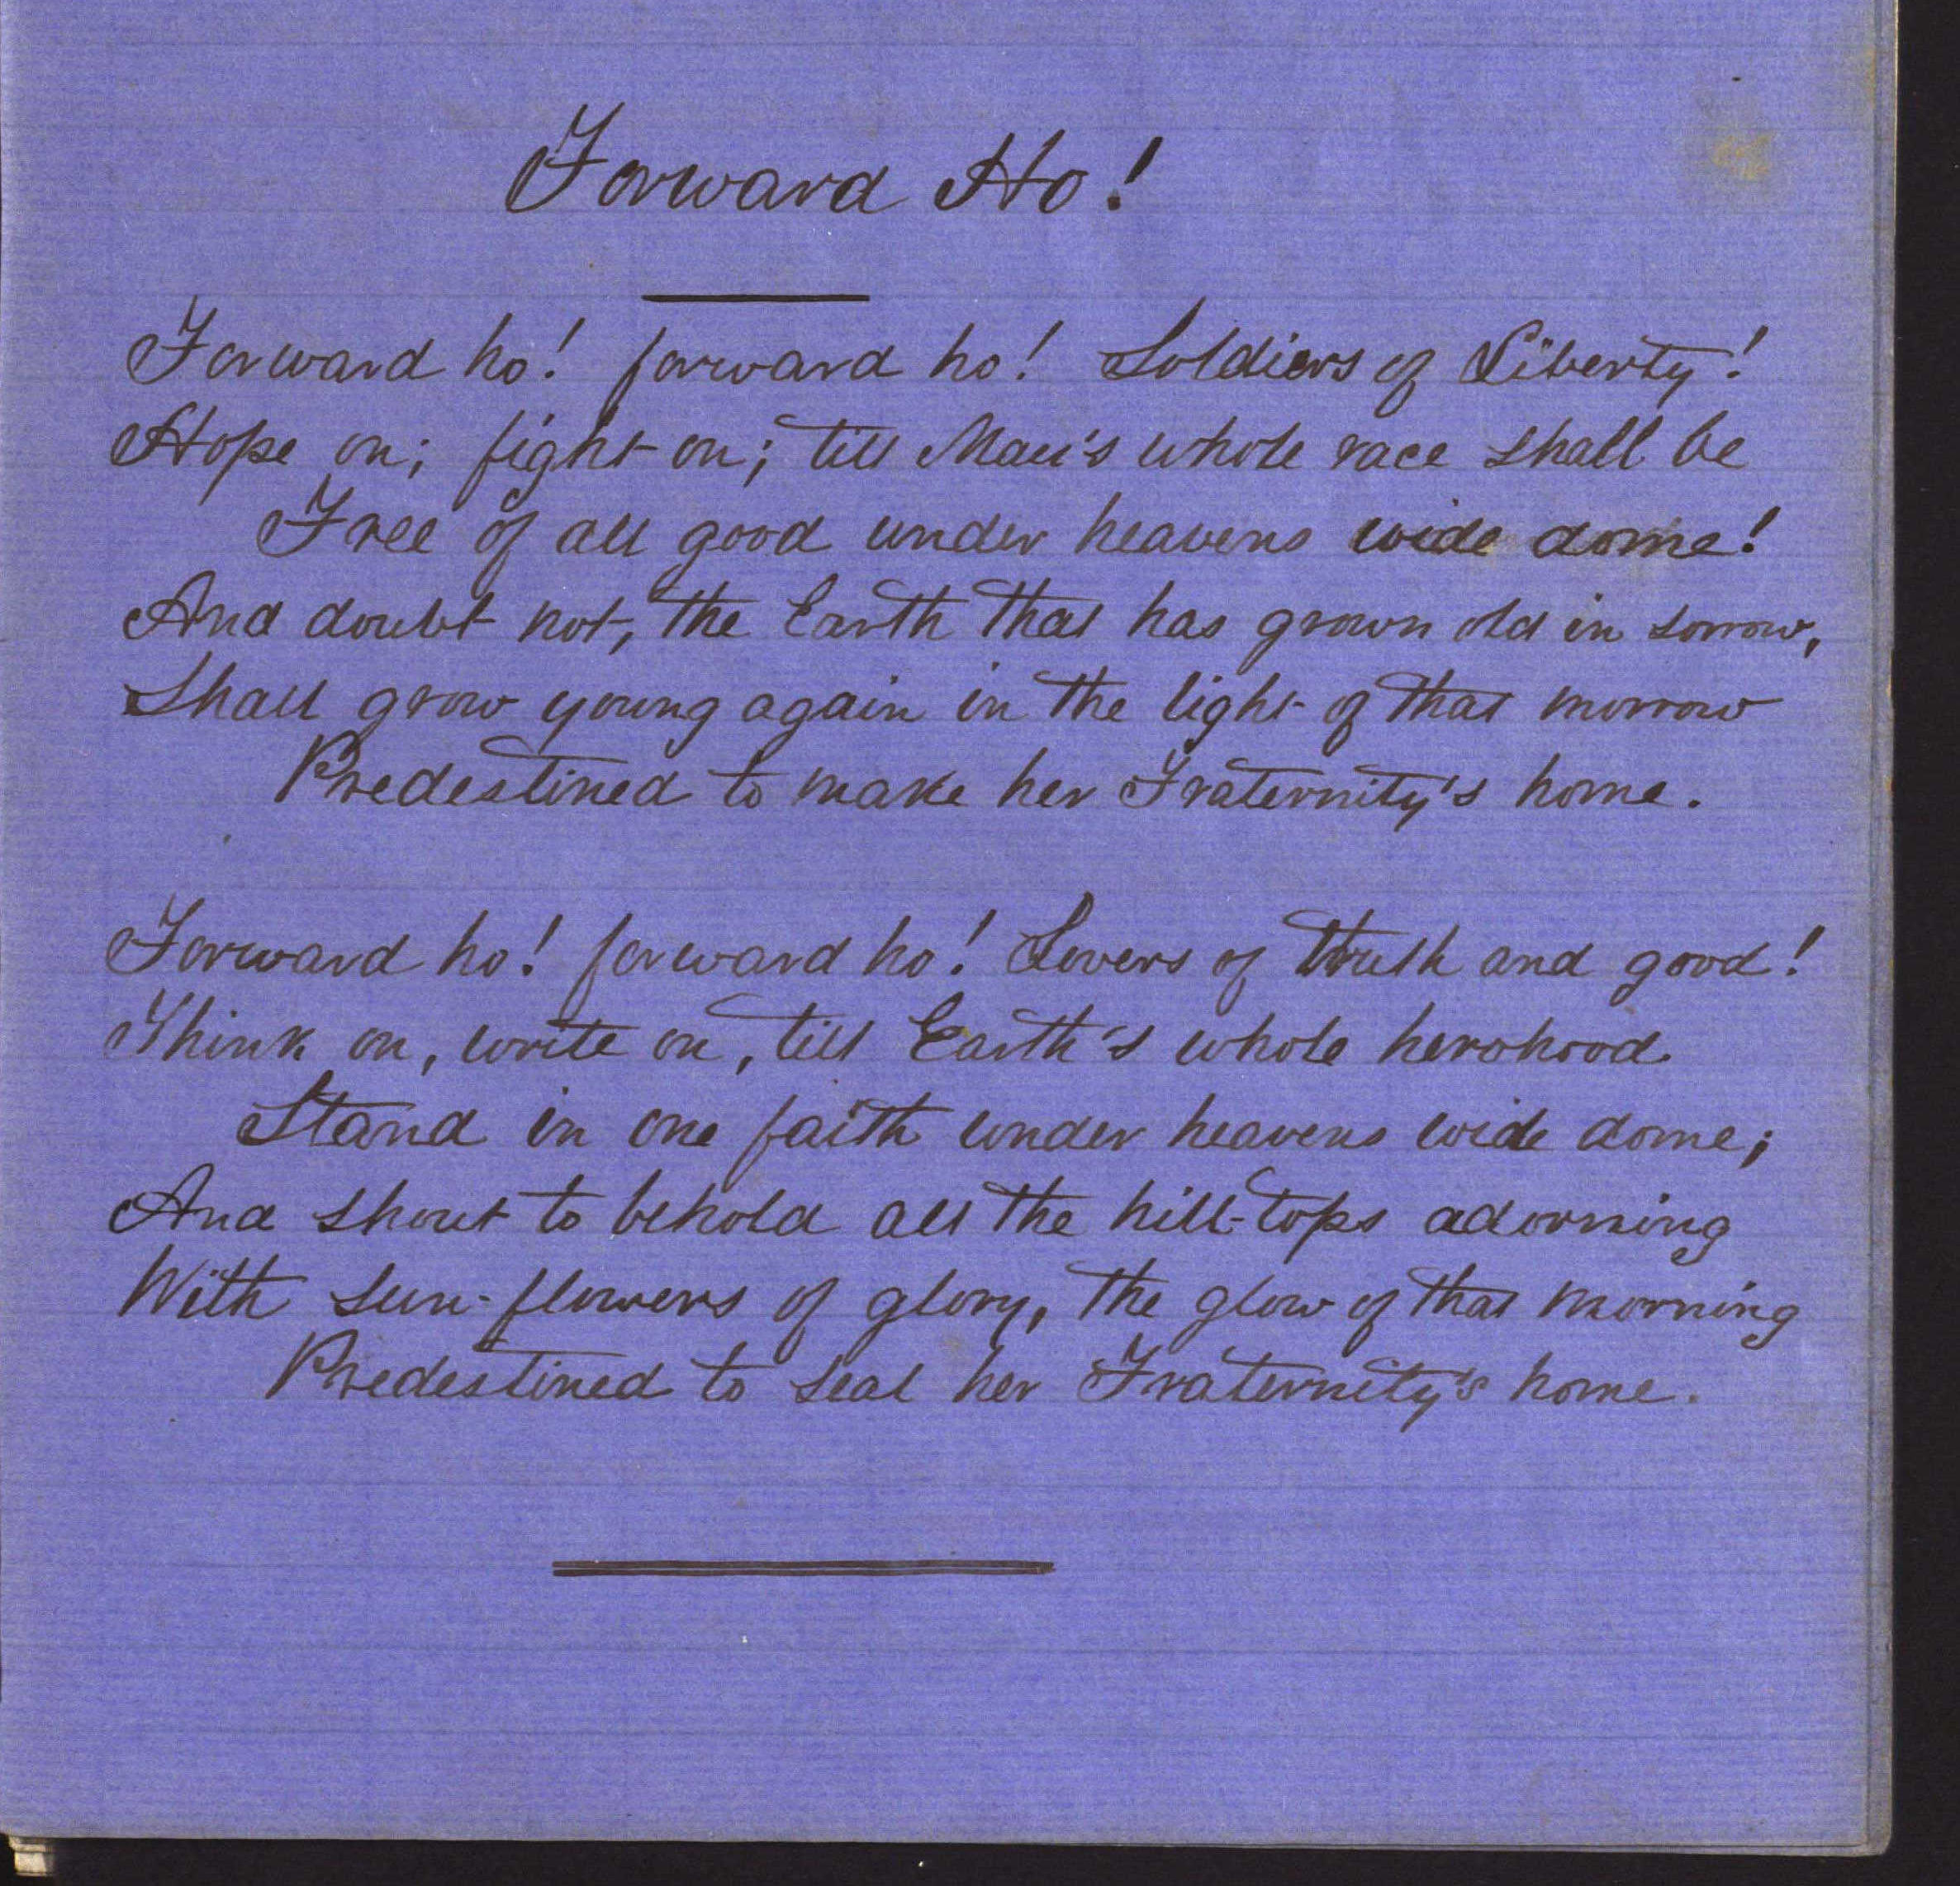 Forward Ho!
Forward ho! forward ho! Soldiers of Liberty!
Hope on; fight on; till Man's whole race shall be
Free of all good under heavens wide dome!
And doubt not, the Earth that has grown old in sorrow,
Shall grow young again in the light of that morrow
Predestined to make her Fraternity's home.
Forward ho! forward ho! Lovers of truth and good!
Think on, write on, till Earth's whole herohood
Stand in one faith under heavens wide dome;
And shout to behold all the hill-tops adorning
With sun-flowers of glory, the glow of that morning
Predestined to seal her Fraternity's home.